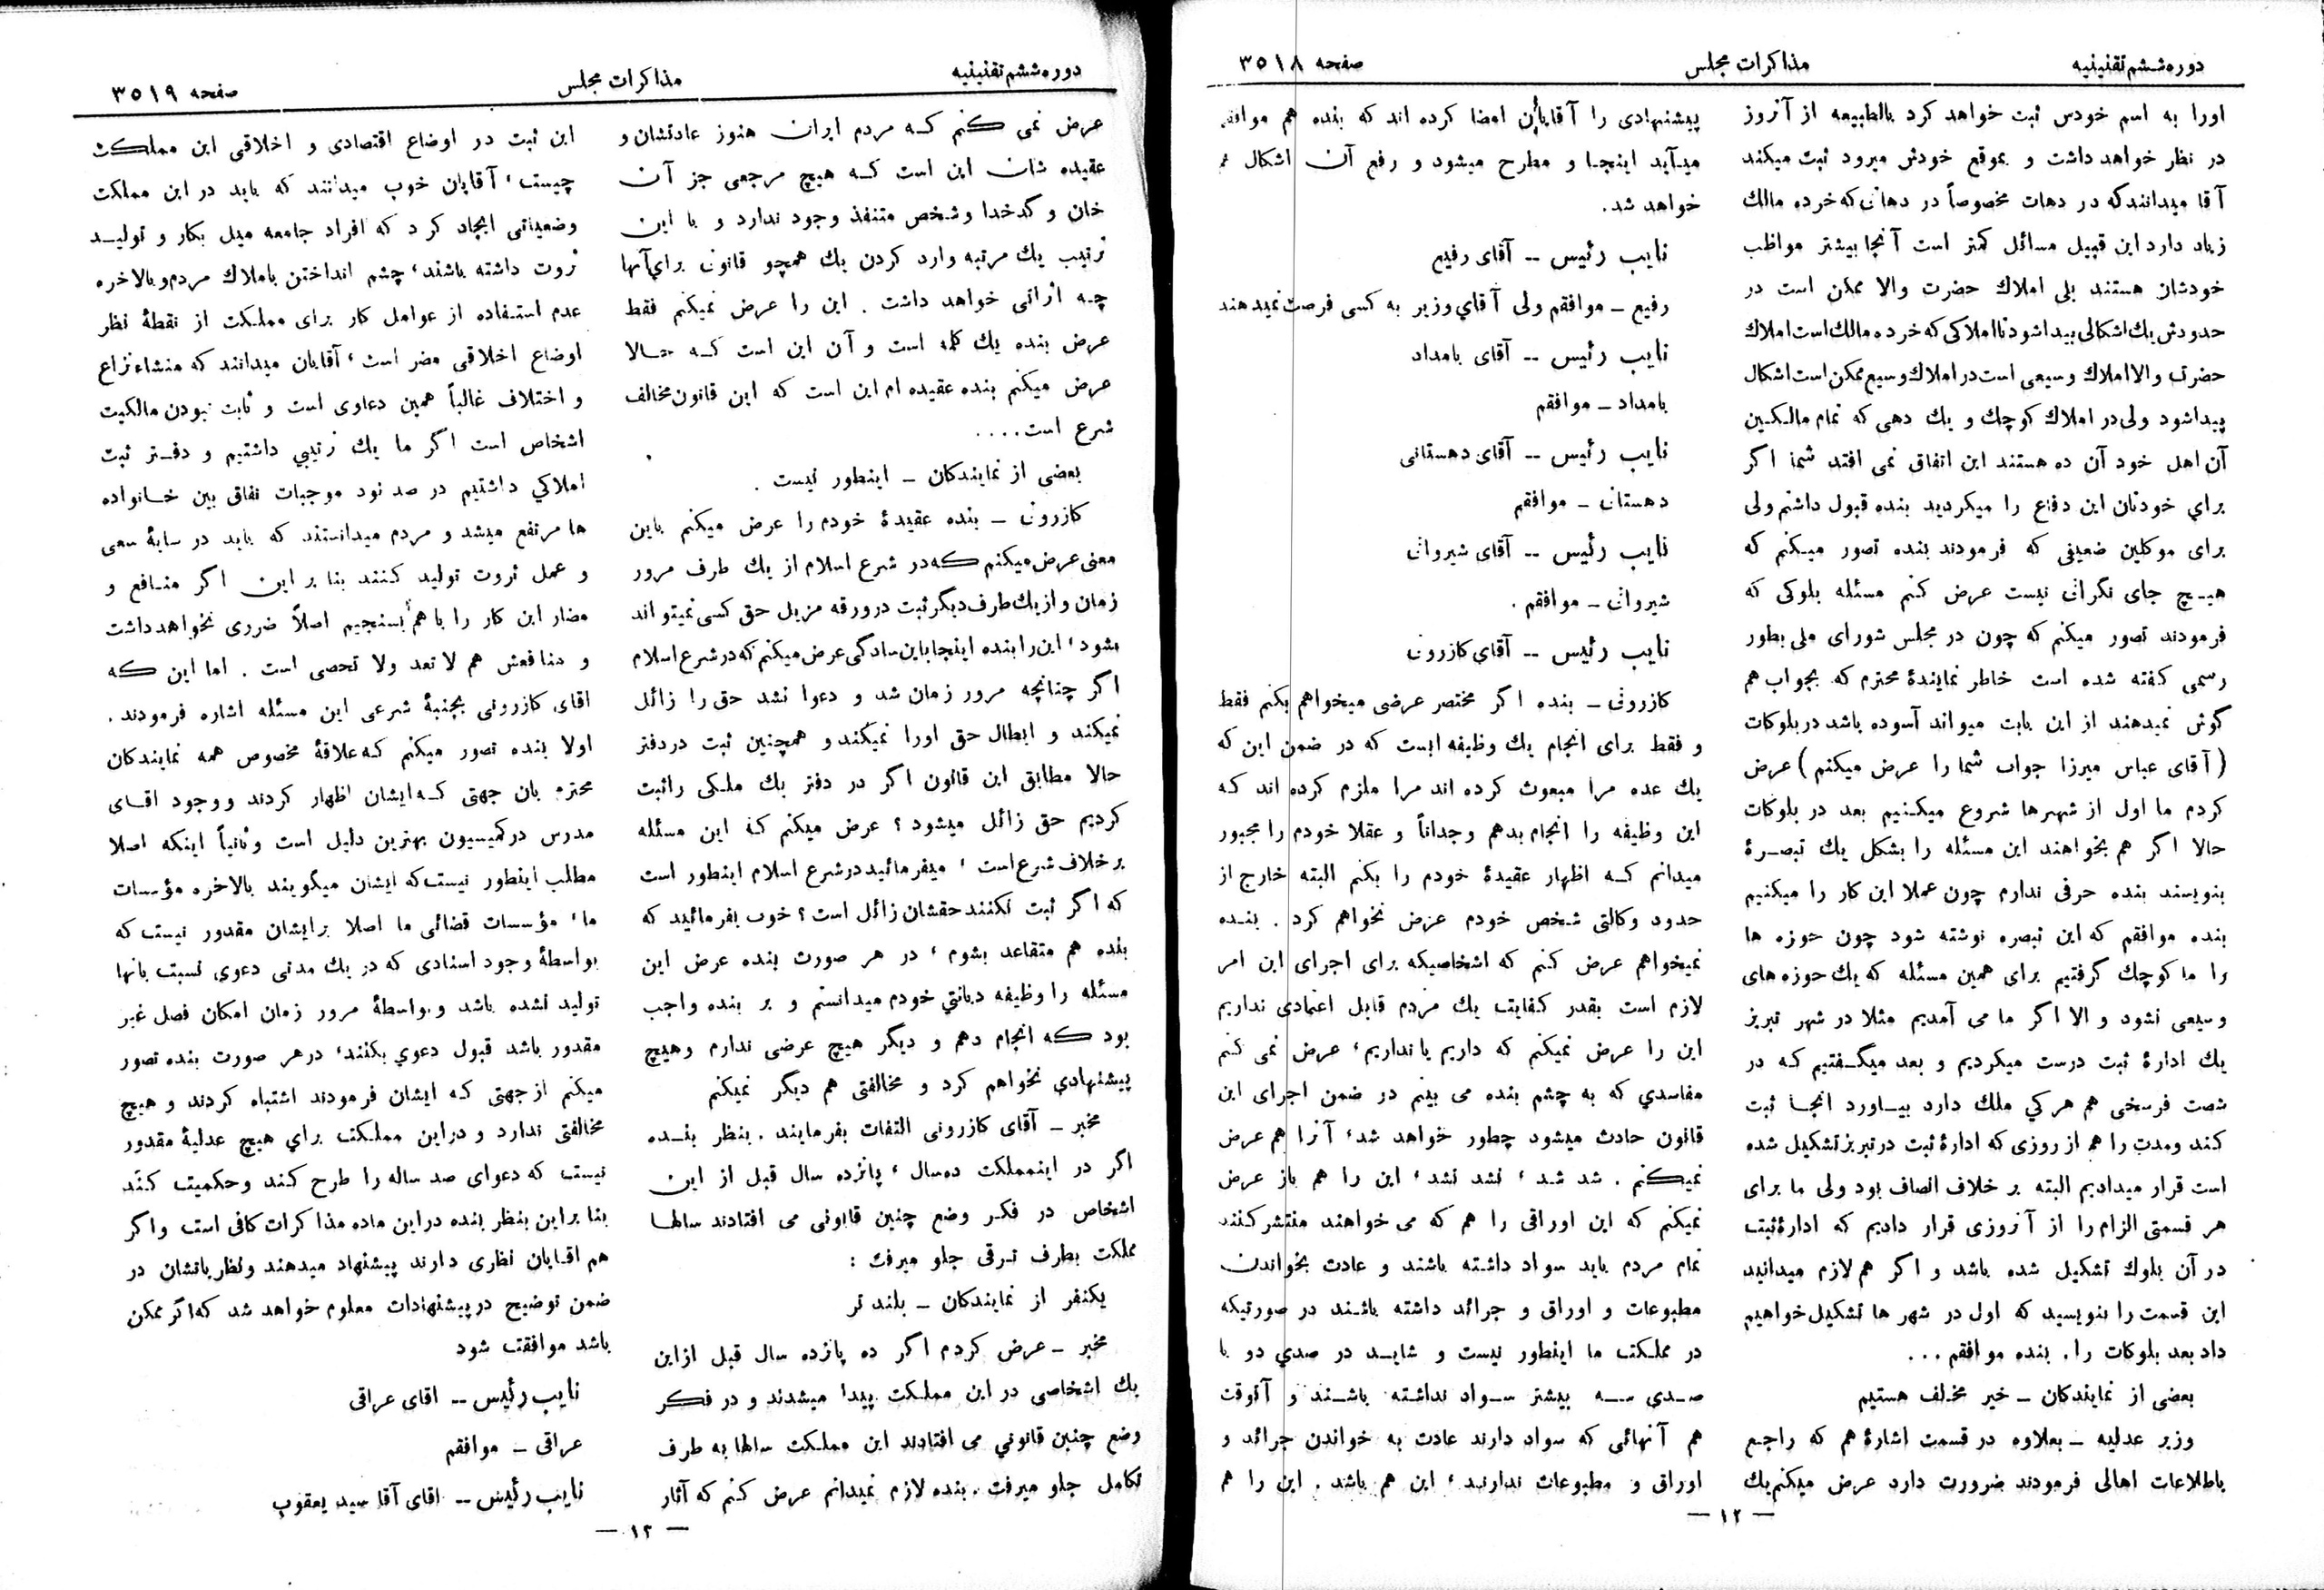 دوره ششم تقنینیه
مذاکرات مجلس
صفحه ۳۵۱۸
اورا به اسم خودس ثبت خواهد کرد بالطبیعه از آنروز
در نظر خواهد داشت و بموقع خودش میرود ثبت میکند
آقا میدانند که در دهات مخصوصاً در دهاتی که خرده مالك
زیاد دارد این قبیل مسائل کمتر است آنجا بیشتر مواظب
خودشان هستند بلی املاك حضرت والا ممکن است در
حدودش یك اشکالی پیدا شود تا املاکی که خرده مالك است املاك
حضرت والا املاك وسیعی است در املاك وسیع ممکن است اشکال
پیدا شود ولی در املاك کوچك و یك دهی که تمام مالکین
آن اهل خود آن ده هستند این اتفاق نمی افتد شما اگر
برای خودتان این دفاع را میکردید بنده قبول داشتم ولی
برای موکلین ضعیفی که فرمودند بنده تصور میکنم که
هیچ جای نگرانی نیست عرض کنم مسئله بلوکی که
فرمودند تصور میکنم که چون در مجلس شورای ملی بطور
رسمی گفته شده است خاطر نمایندۀ محترم که بجواب هم
گوش نمیدهند از این بابت میواند آسوده باشد در بلوکات
( آقای عباس میرزا جواب شما را عرض میکنم ) عرض
کردم ما اول از شهرها شروع میکنیم بعد در بلوکات
حالا اگر هم بخواهند این مسئله را بشکل یك تبصرۀ
بنویسند بنده حرفی ندارم چون عملا این کار را میکنیم
بنده موافقم که این تبصره نوشته شود چون حوزه ها
را ما کوچك گرفتیم برای همین مسئله که یك حوزه های
وسیعی نشود و الا اگر ما می آمدیم مثلا در شهر تبریز
یك ادارۀ ثبت درست میکردیم و بعد میگفتیم که در
شصت فرسخی هم هر کی ملك دارد بیاورد انجا ثبت
کند ومدت را هم از روزی که ادارۀ ثبت در تبریز تشکیل شده
است قرار میدادیم البته بر خلاف انصاف بود ولی ما برای
هر قسمتی الزام را از آنروزی قرار دادیم که ادارۀ ثبت
در آن بلوك تشکیل شده باشد و اگر هم لازم میدانید
این قسمت را بنویسید که اول در شهر ها تشکیل خواهیم
داد بعد بلوکات را . بنده موافقم ...
بعضی از نمایندکان ــ خیر مخالف هستیم
وزیر عدلیه ــ بعلاوه در قسمت اشارۀ هم که راجع
باطلاعات اهالی فرمودند ضرورت دارد عرض میکنم یك
پیشنهادی را آقایان امضا کرده اند که بنده هم موافقم
میآید اینجا و مطرح میشود و رفع آن اشکال هم
خواهد شد.
نایب رئیس -- آقای رفیع
رفیع ــ موافقم ولی آقای وزیر به کسی فرصت نمیدهند
نایب رئیس -- آقای بامداد
بامداد ــ موافقم
نایب رئیس -- آقای دهستانی
دهستانی ــ موافقم
نایب رئیس -- آقای شیروانی
شیروانی ــ موافقم .
نایب رئیس -- آقای کازرونی
کازرونی ــ بنده اگر مختصر عرضی میخواهم بکنم فقط
و فقط برای انجام یك وظیفه ایست که در ضمن این که
یك عده مرا مبعوث کرده اند مرا ملزم کرده اند که
این وظیفه را انجام بدهم وجداناً و عقلا خودم را مجبور
میدانم که اظهار عقیدۀ خودم را بکنم البته خارج از
حدود وکالتی شخص خودم عرض نخواهم کرد . بنده
نمیخواهم عرض کنم که اشخاصیکه برای اجرای این امر
لازم است بقدر کفایت یك مردم قابل اعتمادی نداریم
این را عرض نمیکنم که داریم یا نداریم ، عرض نمی کنم
مفاسدی که به چشم بنده می بینم در ضمن اجرای این
قانون حادث میشود چطور خواهد شد ، آنرا هم عرض
نمیکنم . شد شد ، نشد نشد ، این را هم باز عرض
نمیکنم که این اوراقی را هم که می خواهند منتشر کنند
تمام مردم باید سواد داشته باشند و عادت بخواندن
مطبوعات و اوراق و جرائد داشته باشند در صورتیکه
در مملکت ما اینطور نیست و شاید در صدی دو یا
صدی سه بیشتر سواد نداشته باشند و آنوقت
هم آنهائی که سواد دارند عادت به خواندن جرائد و
اوراق و مطبوعات ندارند ، این هم باشد . این را هم
— ۱۲ —
دوره ششم تقنینیه
مذاکرات مجلس
صفحه ۳۵۱۹
عرض نمی کنم که مردم ایران هنوز عادتشان و
عقیده شان این است که هیچ مرجعی جز آن
خان و کدخدا و شخص متنفذ وجود ندارد و با این
ترتیب یك مرتبه وارد کردن یك همچو قانونی برای آنها
چه اثراتی خواهد داشت . این را عرض نمیکنم فقط
عرض بنده یك کلمه است و آن این است که حالا
عرض میکنم بنده عقیده ام این است که این قانون مخالف
شرع است....
بعضی از نمایندکان ــ اینطور نیست .
کازرونی ــ بنده عقیدۀ خودم را عرض میکنم باین
معنی عرض میکنم که در شرع اسلام از یك طرف مرور
زمان و از یك طرف دیگر ثبت در ورقه مزیل حق کسی نمیتواند
بشود ، این را بنده اینجا باین سادگی عرض میکنم که در شرع اسلام
اگر چنانچه مرور زمان شد و دعوا نشد حق را زائل
نمیکند و ابطال حق اورا نمیکند و همچنین ثبت در دفتر
حالا مطابق این قانون اگر در دفتر یك ملکی را ثبت
کردیم حق زائل میشود ؟ عرض میکنم که این مسئله
بر خلاف شرع است ، میفرمائید در شرع اسلام اینطور است
که اگر ثبت نکنند حقشان زائل است ؟ خوب بفرمائید که
بنده هم متقاعد بشوم ، در هر صورت بنده عرض این
مسئله را وظیفه دیانتی خودم میدانستم و بر بنده واجب
بود که انجام دهم و دیگر هیچ عرضی ندارم وهیچ
پیشنهادی نخواهم کرد و مخالفتی هم دیگر نمیکنم
مخبر ــ آقای کازرونی التفات بفرمایند . بنظر بنده
اگر در اینمملکت ده سال ، پانزده سال قبل از این
اشخاص در فکر وضع چنین قانونی می افتادند سالها
مملکت بطرف ترقی جلو میرفت :
یکنفر از نمایندکان ــ بلند تر
مخبر ــ عرض کردم اگر ده پانزده سال قبل از این
یك اشخاصی در این مملکت پیدا میشدند و در فکر
وضع چنین قانونی می افتادند این مملکت سالها به طرف
تکامل جلو میرفت . بنده لازم نمیدانم عرض کنم که آثار
این ثبت در اوضاع اقتصادی و اخلاقی این مملکت
چیست ، آقایان خوب میدانند که باید در این مملکت
وضعیاتی ایجاد کرد که افراد جامعه میل بکار و تولید
ثروت داشته باشند ، چشم انداختن باملاك مردم و بالاخره
عدم استفاده از عوامل کار برای مملکت از نقطۀ نظر
اوضاع اخلاقی مضر است ، آقایان میدانند که منشاء نزاع
و اختلاف غالباً همین دعاوی است و ثابت نبودن مالکیت
اشخاص است اگر ما یك ترتیبی داشتیم و دفتر ثبت
املاکی داشتیم در صد نود موجبات نفاق بین خانواده
ها مرتفع میشد و مردم میدانستند که باید در سایۀ سعی
و عمل ثروت تولید کنند بنا بر این اگر منافع و
مضار این کار را باهم بسنجیم اصلاً ضرری نخواهد داشت
و منافعش هم لا تعد ولا تحصی است . اما این که
اقای کازرونی بجنبۀ شرعی این مسئله اشاره فرمودند .
اولا بنده تصور میکنم که علاقۀ مخصوص همه نمایندکان
محترم بان جهتی که ایشان اظهار کردند و وجود اقای
مدرس در کمیسیون بهترین دلیل است وثانیاً اینکه اصلا
مطلب اینطور نیست که ایشان میگویند بالاخره مؤسسات
ما ، مؤسسات قضائی ما اصلا برایشان مقدور نیست که
بواسطۀ وجود اسنادی که در یك مدتی دعوی نسبت بانها
تولید نشده باشد و بواسطۀ مرور زمان امکان فصل غیر
مقدور باشد قبول دعوی بکنند ، در هر صورت بنده تصور
میکنم از جهتی که ایشان فرمودند اشتباه کردند و هیچ
مخالفتی ندارد و در این مملکت برای هیچ عدلیۀ مقدور
نیست که دعوای صد ساله را طرح کند وحکمیت کند
بنا بر این بنظر بنده در این ماده مذاکرات کافی است واگر
هم اقایان نظری دارند پیشنهاد میدهند و نظریاتشان در
ضمن توضیح در پیشنهادات معلوم خواهد شد که اگر ممکن
باشد موافقت شود
نایب رئیس -- اقای عراقی
عراقی ــ موافقم
نایب رئیس -- اقای آقا سید یعقوب
— ۱۲ —